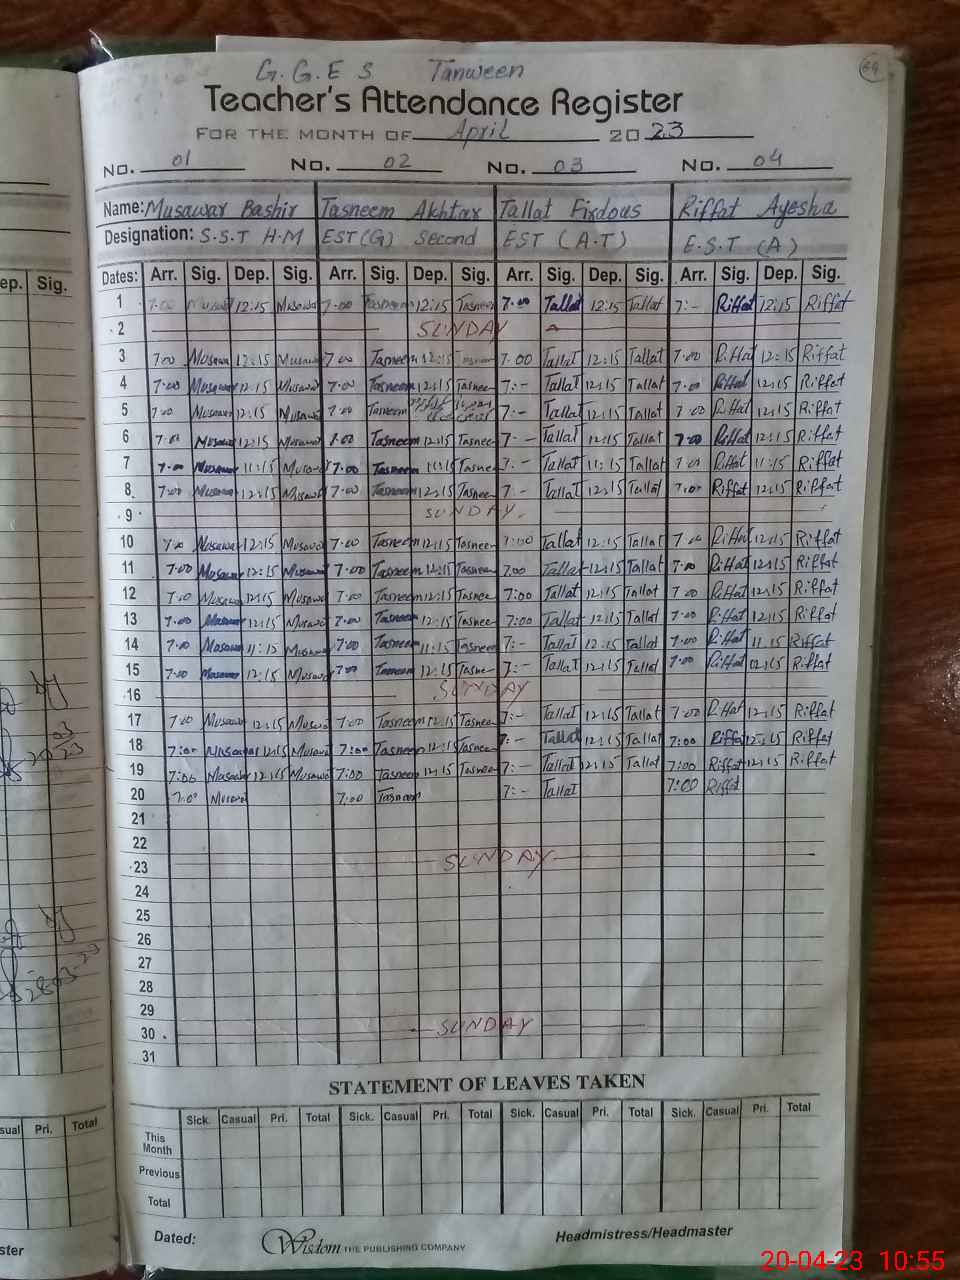 G.G.E S Tanween
69
Teacher's Attendance Register
FOR THE MONTH OF April 2023
No. 01 No. 02 No. 03 No. 04
Name: Musawar Bashir Tasneem Akhtar Tallat Firdous Riffat Ayesha
Designation: S.S.T H.M EST(G) Second EST (A.T) E.S.T (A)
ep. Sig. Dates: Arr. Sig. Dep. Sig. Arr. Sig. Dep. Sig. Arr. Sig. Dep. Sig. Arr. Sig. Dep. Sig.
1 7:00 Musawa 12:15 Musawa 7:00 Tasneem 12:15 Tasneem 7:00 Tallat 12:15 Tallat 7:- Riffat 12:15 Riffat
2 SUNDAY
3 7:00 Musawa 12:15 Musawa 7:00 Tasneem 12:15 Tasneem 7:00 Tallat 12:15 Tallat 7:00 Riffat 12:15 Riffat
4 7:00 Musawar 12:15 Musawa 7:00 Tasneem 12:15 Tasneem 7:- Tallat 12:15 Tallat 7:00 Riffat 12:15 Riffat
5 7:00 Musawar 12:15 Musawa 7:00 Tasneem 7:- Tallat 12:15 Tallat 7:00 Riffat 12:15 Riffat
6 7:00 Musawar 12:15 Musawa 7:00 Tasneem 12:15 Tasneem 7:- Tallat 12:15 Tallat 7:00 Riffat 12:15 Riffat
7 7:00 Musawar 11:15 Musawa 7:00 Tasneem 11:15 Tasneem 7:- Tallat 11:15 Tallat 7:00 Riffat 11:15 Riffat
8 7:00 Musawar 12:15 Musawa 7:00 Tasneem 12:15 Tasneem 7:- Tallat 12:15 Tallat 7:00 Riffat 12:15 Riffat
9 SUNDAY
10 7:00 Musawar 12:15 Musawa 7:00 Tasneem 12:15 Tasneem 7:00 Tallat 12:15 Tallat 7:00 Riffat 12:15 Riffat
11 7:00 Musawar 12:15 Musawa 7:00 Tasneem 12:15 Tasneem 7:00 Tallat 12:15 Tallat 7:00 Riffat 12:15 Riffat
12 7:00 Musawa 12:15 Musawa 7:00 Tasneem 12:15 Tasneem 7:00 Tallat 12:15 Tallat 7:00 Riffat 12:15 Riffat
13 7:00 Musawa 12:15 Musawa 7:00 Tasneem 12:15 Tasneem 7:00 Tallat 12:15 Tallat 7:00 Riffat 12:15 Riffat
14 7:00 Musawa 11:15 Musawa 7:00 Tasneem 11:15 Tasneem 7:- Tallat 12:15 Tallat 7:00 Riffat 11:15 Riffat
15 7:00 Musawar 12:15 Musawa 7:00 Tasneem 12:15 Tasne 7:- Tallat 12:15 Tallat 7:00 Riffat 12:15 Riffat
16 SUNDAY
17 7:00 Musawa 12:15 Musawa 7:00 Tasneem 12:15 Tasneem 7:- Tallat 12:15 Tallat 7:00 Riffat 12:15 Riffat
18 7:00 Musawar 12:15 Musawa 7:00 Tasneem 12:15 Tasneem 7:- Tallat 12:15 Tallat 7:00 Riffat 12:15 Riffat
19 7:00 Musawar 12:15 Musawa 7:00 Tasneem 12:15 Tasneem 7:- Tallat 12:15 Tallat 7:00 Riffat 12:15 Riffat
20 7:00 Musawa 7:00 Tasneem 7:- Tallat 7:00 Riffat
21
22
23 SUNDAY
24
25
26
27
28
29
30 SUNDAY
31
STATEMENT OF LEAVES TAKEN
sual Pri. Total Sick. Casual Pri. Total Sick. Casual Pri. Total Sick. Casual Pri. Total Sick. Casual Pri. Total
This Month
Previous
Total
ster Dated: Wisdom THE PUBLISHING COMPANY Headmistress/Headmaster
20-04-23 10:55